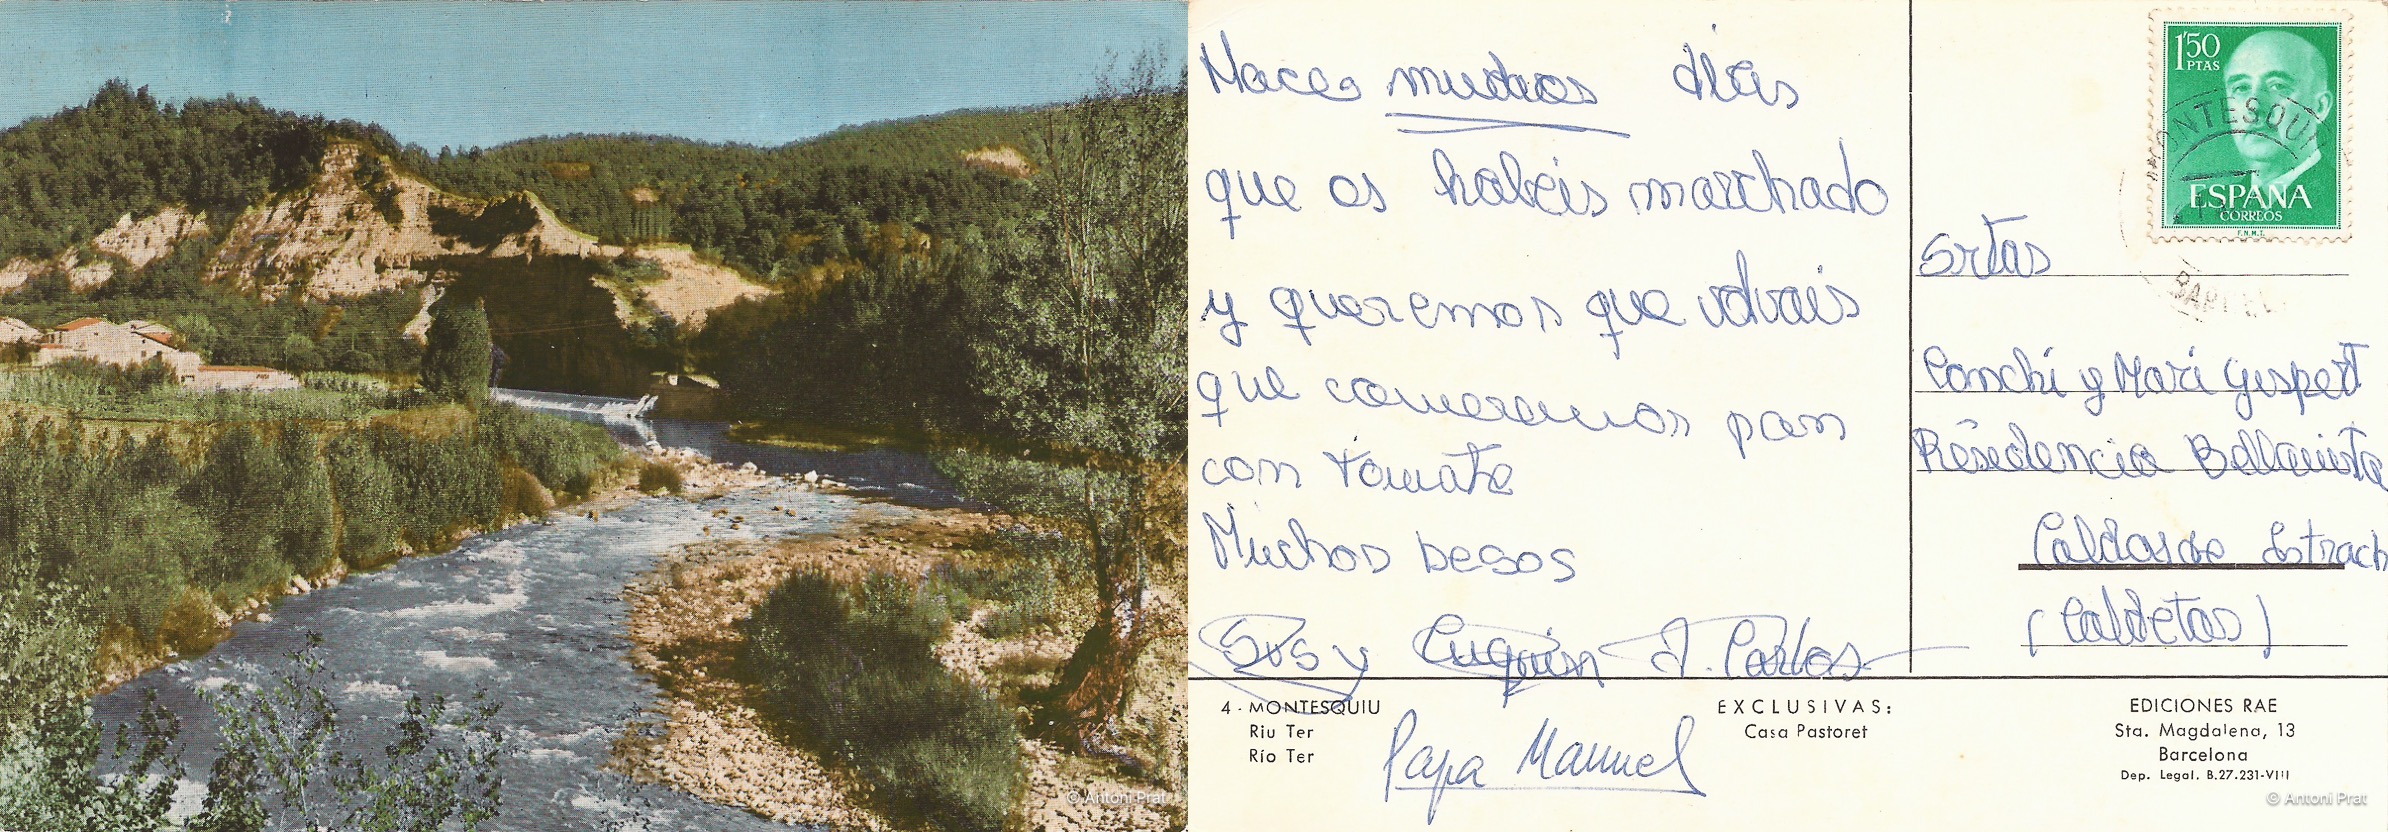 Hace muchos dias
que os habeis marchado
y queremos que volvais
que comeremos pan
con tomate
Muchos besos
Susy Luquin J. Carlos
Papa Manuel
1'50
PTAS
ESPAÑA
CORREOS
F.N.M.T.
MONTESQUIU
BARCEL
Srtas
Conchi y Mari Gispert
Residencia Bellavista
Caldas de Estrach
(Caldetas)
4 - MONTESQUIU
Riu Ter
Río Ter
EXCLUSIVAS:
Casa Pastoret
EDICIONES RAE
Sta. Magdalena, 13
Barcelona
Dep. Legal. B.27.231-VIII
© Antoni Prat
© Antoni Prat